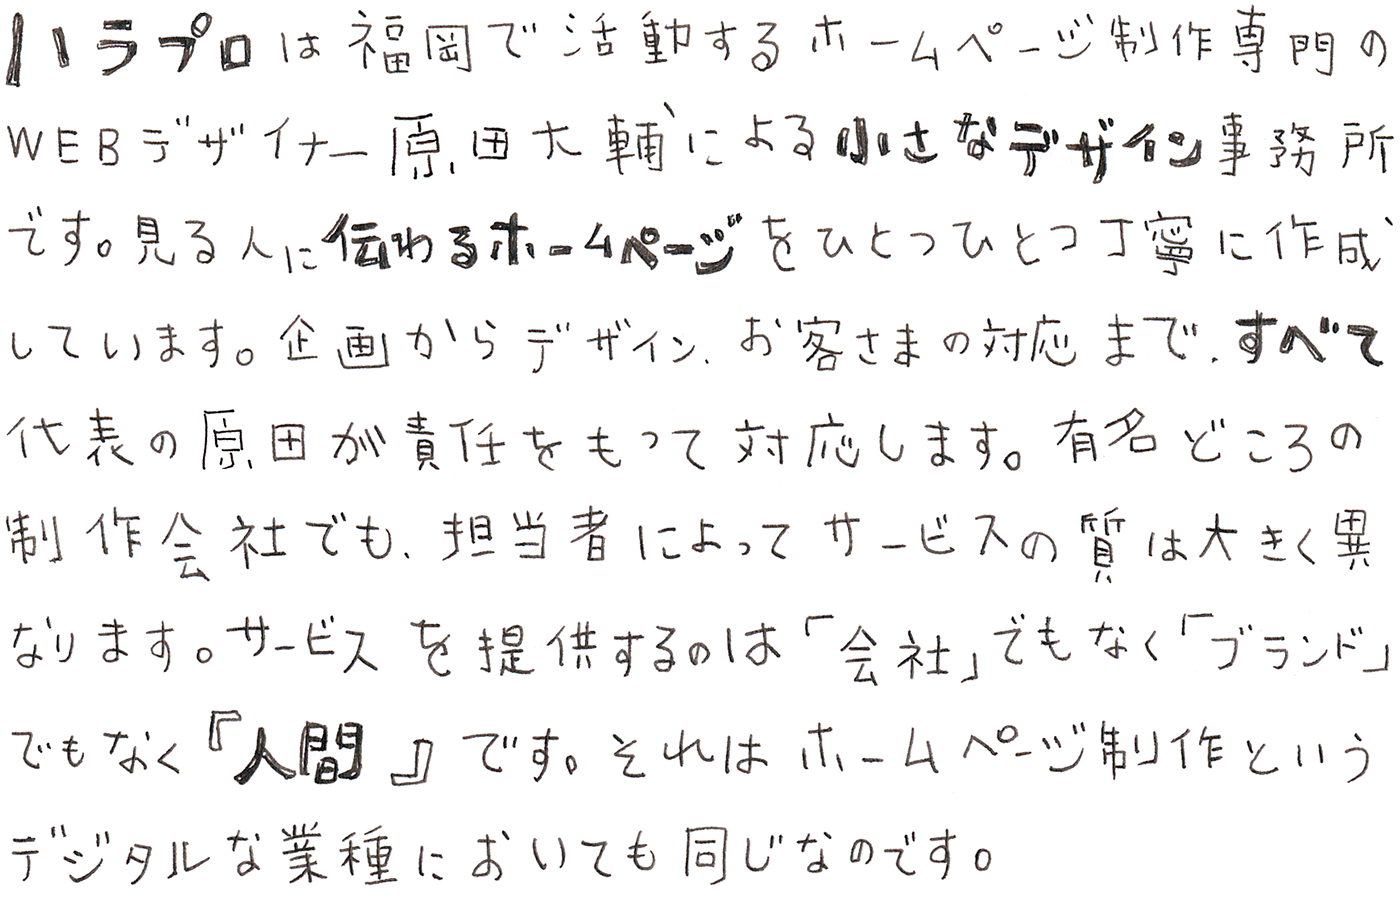 ハラプロは福岡で活動するホームページ制作専門の
WEBデザイナー原田大輔による小さなデザイン事務所
です。見る人に伝わるホームページをひとつひとつ丁寧に作成
しています。企画からデザイン、お客さまの対応まで、すべて
代表の原田が責任をもって対応します。有名どころの
制作会社でも、担当者によってサービスの質は大きく異
なります。サービスを提供するのは「会社」でもなく「ブランド」
でもなく『人間』です。それはホームページ制作という
デジタルな業種においても同じなのです。